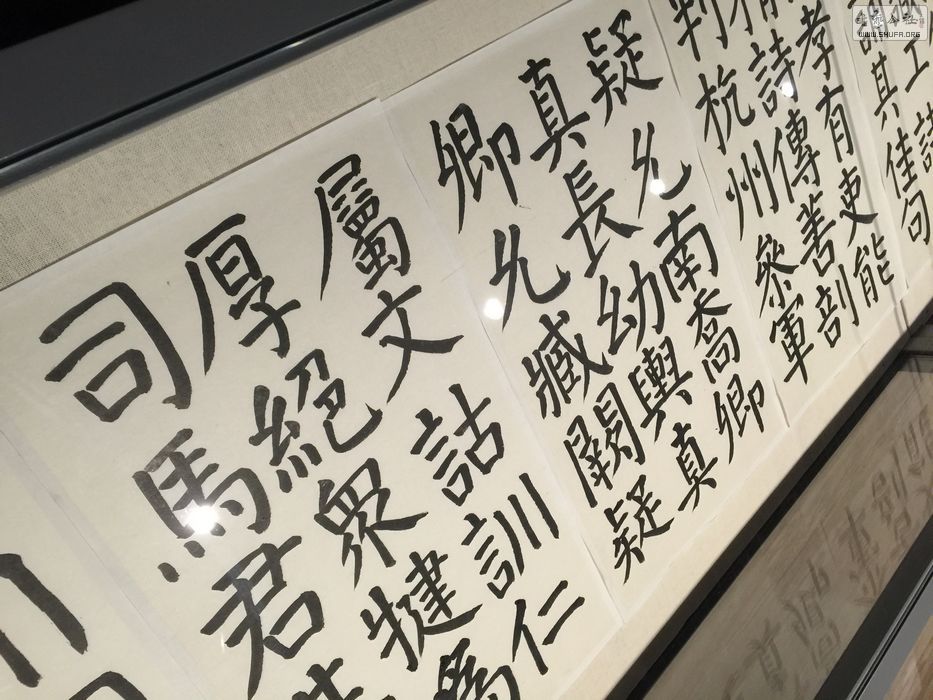 工詩
其佳句
孝有吏能
精詩傳善剖
判杭州參軍
疑允南喬卿
真長幼輿真
卿允臧闕疑
屬文詁訓仁
厚絕眾犍為
司馬君
WWW.SHUFA.ORG